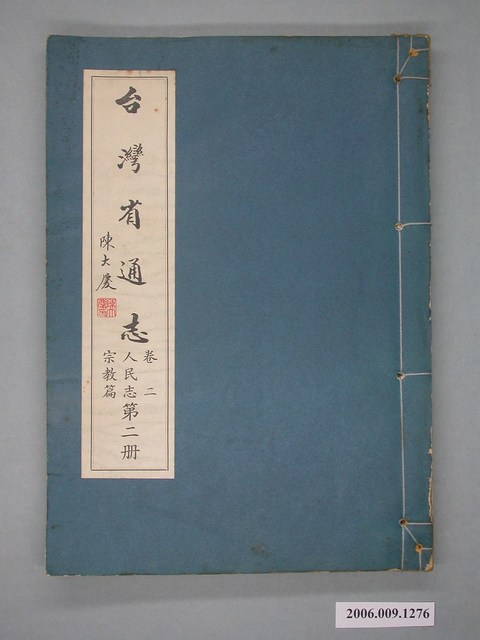 台灣省通志
陳大慶
卷二
人民志
宗教篇
第二册
2006.009.1276